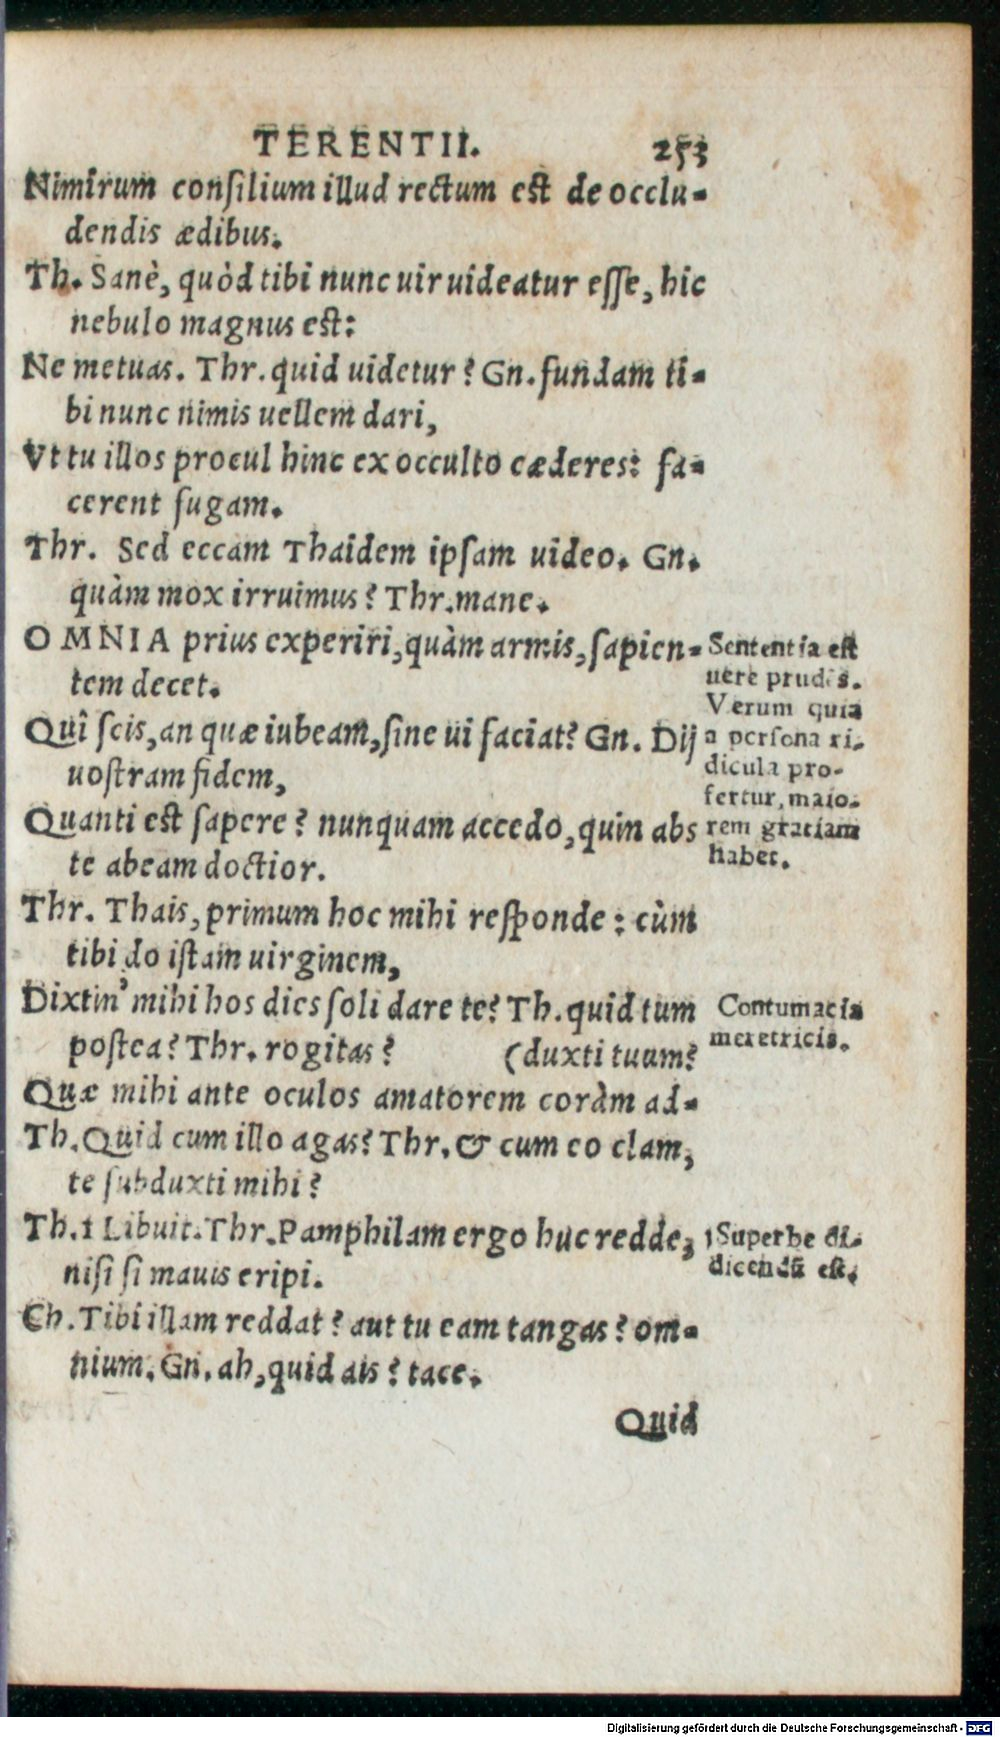 TERENTII. 253
Nimirum consilium illud rectum est de occlu-
dendis ædibus.
Th. Sanè, quòd tibi nunc uir uideatur esse, hic
nebulo magnus est:
Ne metuas. Thr. quid uidetur? Gn. fundam ti-
bi nunc nimis uellem dari,
Vt tu illos procul hinc ex occulto cæderes: fa-
cerent fugam.
Thr. Sed eccam Thaidem ipsam uideo. Gn.
quàm mox irruimus? Thr. mane.
OMNIA prius experiri, quàm armis, sapien-
tem decet.
Quî scis, an quæ iubeam, sine ui faciat? Gn. Dij
uostram fidem,
Quanti est sapere? nunquam accedo, quin abs
te abeam doctior.
Thr. Thais, primum hoc mihi responde: cùm
tibi do istam uirginem,
Dixtin' mihi hos dies soli dare te? Th. quid tum
postea? Thr. rogitas? (duxti tuum?
Quæ mihi ante oculos amatorem coràm ad-
Th. Quid cum illo agas? Thr. & cum eo clam,
te subduxti mihi?
Th. 1 Libuit. Thr. Pamphilam ergo huc redde,
nisi si mauis eripi.
Ch. Tibi illam reddat? aut tu eam tangas? om-
nium. Gn. ah, quid ais? tace.
Quid
Sententia est
uere prudẽs.
Verum quia
a persona ri-
dicula pro-
fertur, maio-
rem gratiam
habet.
Contumacia
meretricis.
1 Superbe di-
dicendũ est.
Digitalisierung gefördert durch die Deutsche Forschungsgemeinschaft - DFG